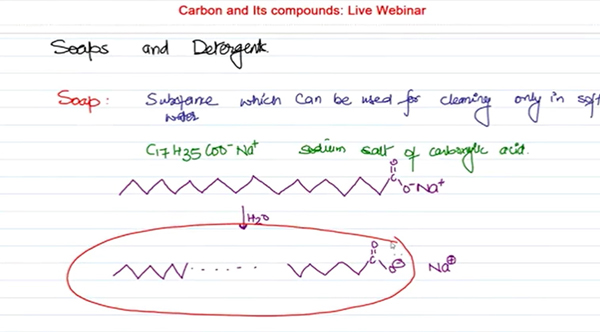 Carbon and Its compounds: Live Webinar
Soaps and Detergent
Soap: Substance which can be used for cleaning only in soft
water
C17H35COO-Na+ sodium salt of carboxylic acid.
O
C
O-Na+
H2O
O
C
O⊖ Na⊕